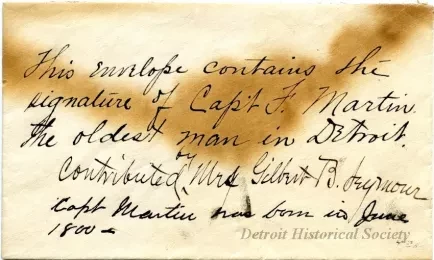 This envelope contains the
signature of Capt F. Martin.
the oldest man in Detroit.
Contributed by Mrs Gilbert B. Seymour
Capt Martin was born in June
1800-
Detroit Historical Society